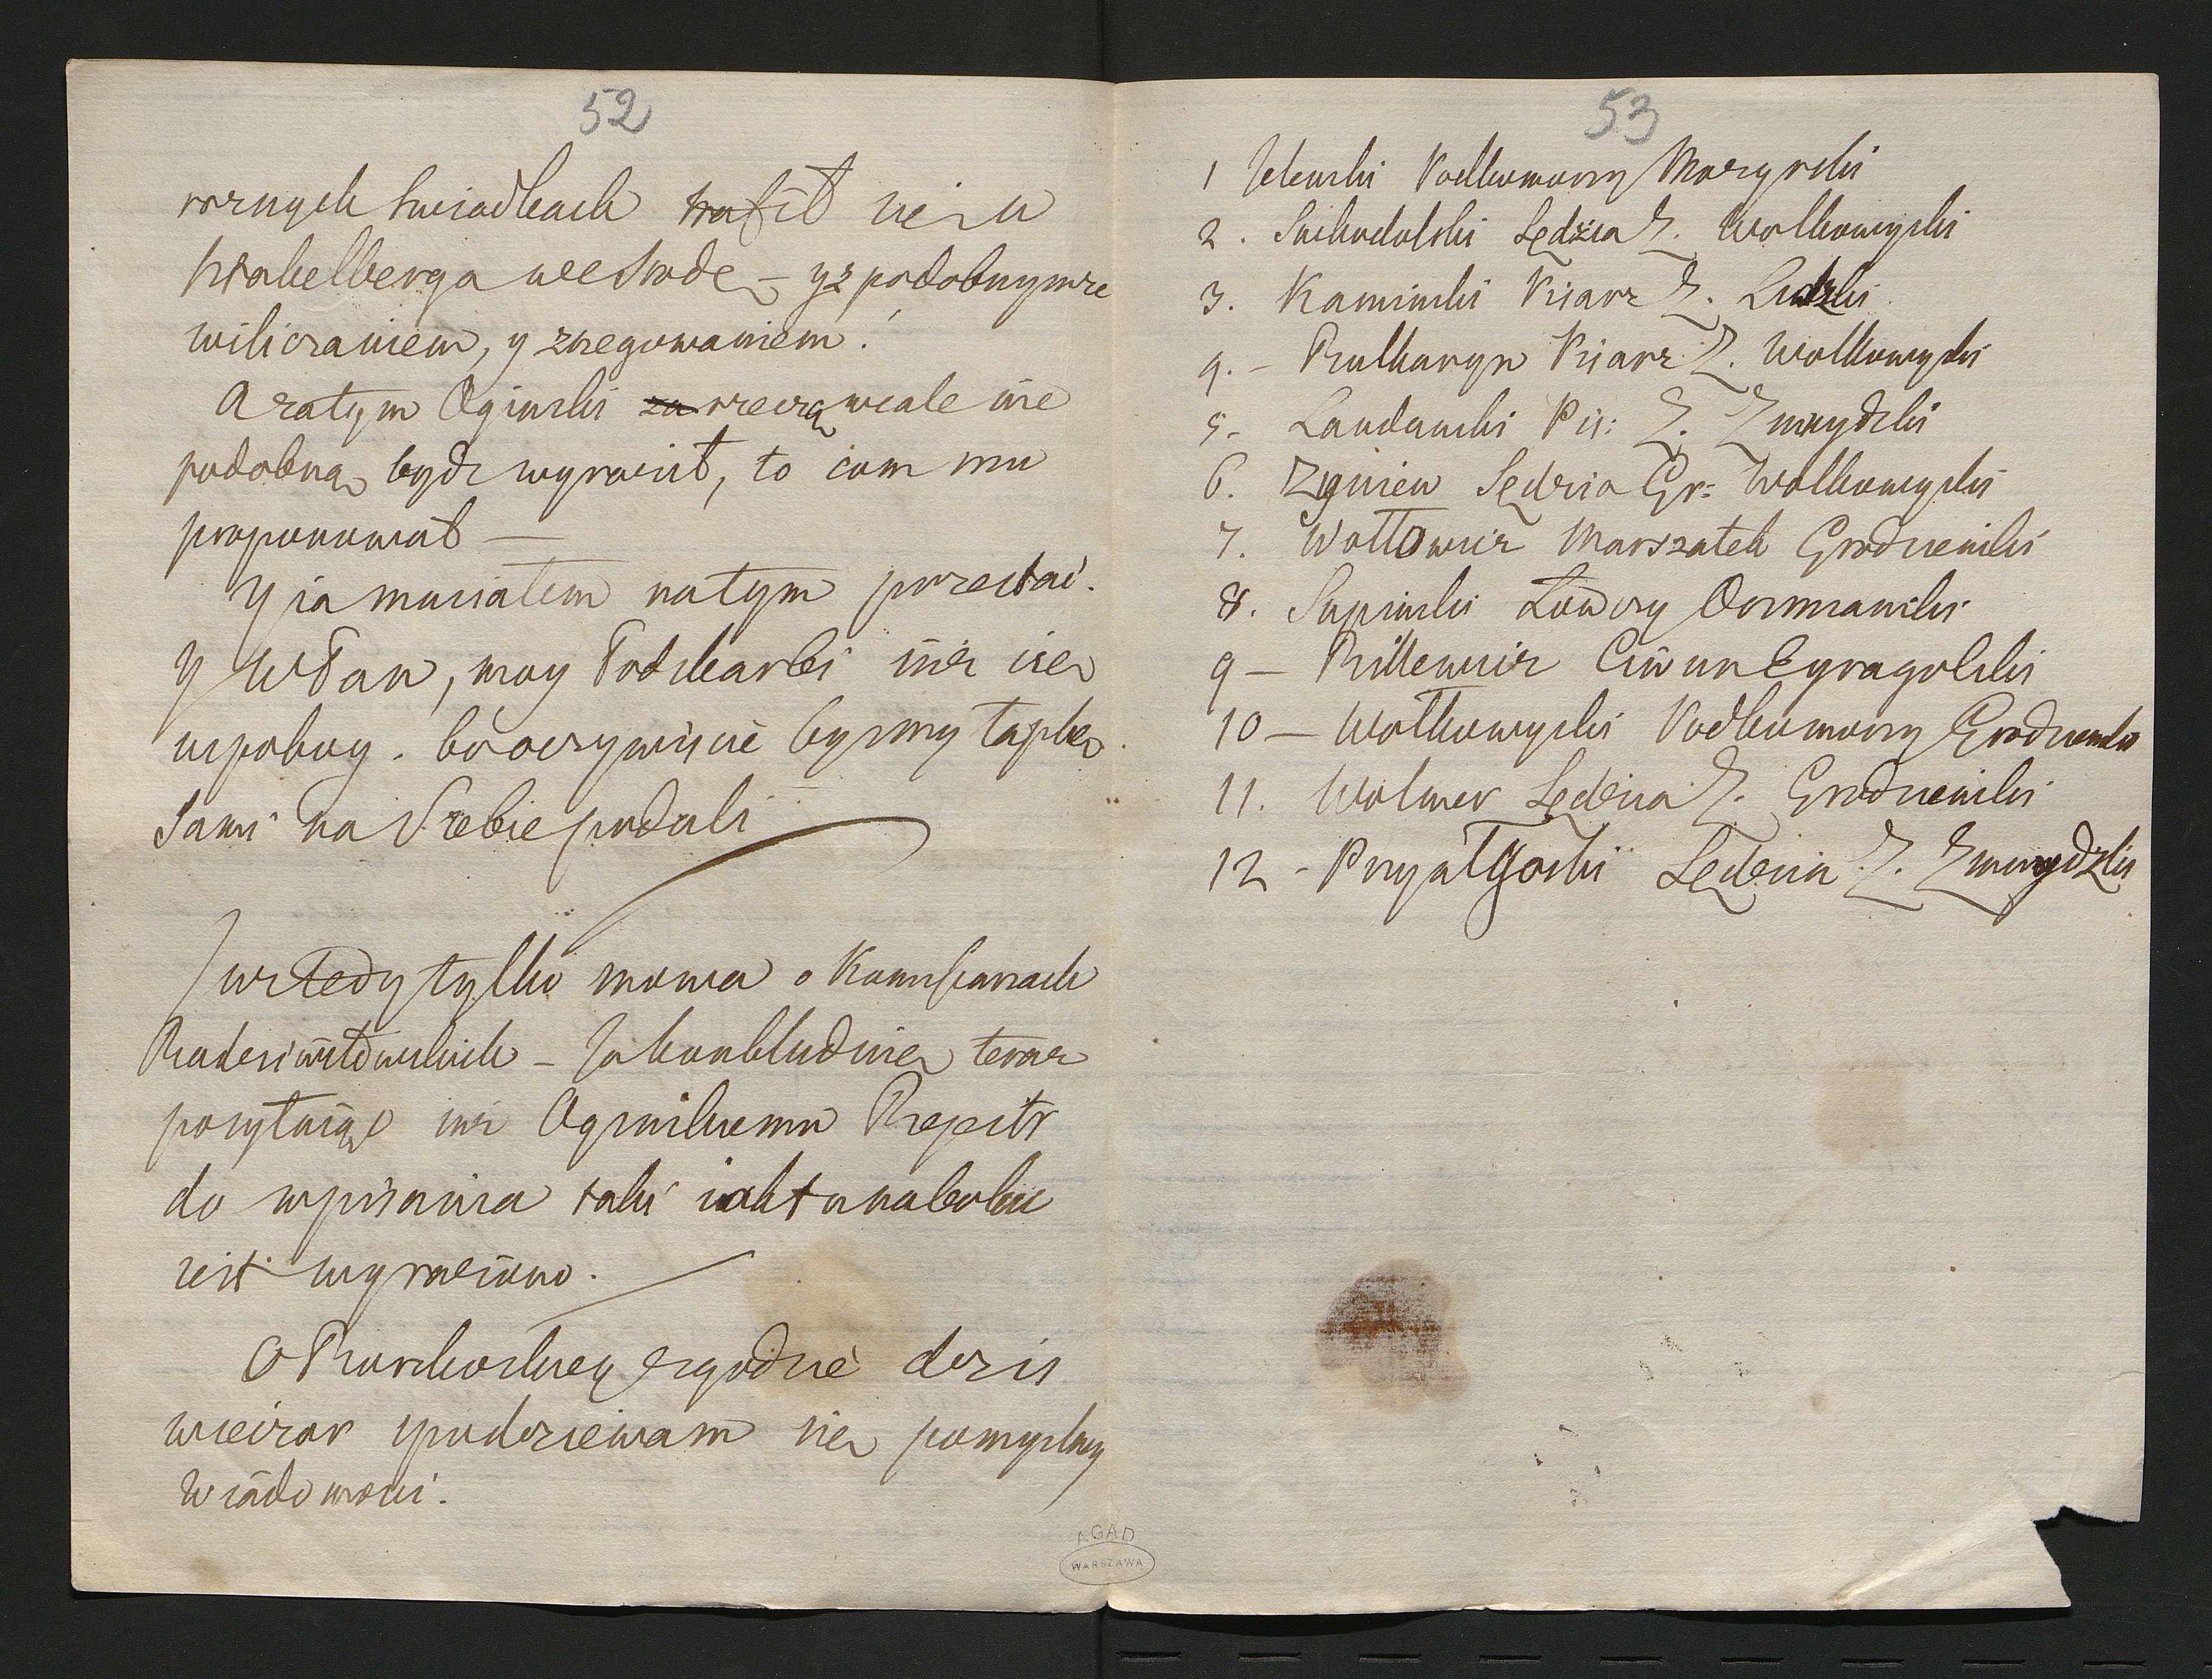 52
roznych swiadkach trafił się u
Sztakelberga we szrodę - y z podobnymże
wiliczaniem, y zregowaniem!
A zatym Oginski rzeczą wcale nie
podobną bydz wyraził, to com mu
proponował —
Y ia musiałem na tym przestać.
Y WPan, moy Podskarbi niż się
uspokoy. bo oczywiście bysmy łapkę
Sami na Siebie podali
wtedy tylko mowa o Kommissarzach
Radziwiłłowskich - Ja konkluduię teraz
posyłaiąc Oginskiemu Regestr
do wpisania taki iak tu naboku
iest wyrażono.
O Karskoskiey zgodzie dzis
wieczor spodziewam się pomyslney
wiadomosci.
53
1 Jelenski Podkomorzy Mozyrski
2. Suchodolski Sędzia Z. Wołkowyski
3. Kaminski Pisarz Z. Lidzki
4. - Bułharyn Pisarz Z. Wołkowyski
5 - Landanski Pis: Z. Zmuydzki
6. Zyniew Sędzia Gr: Wołkowyski
7. Wołłowicz Marszałek Grodzienski
8. Supinski Łowczy Oszmianski
9 - Billewicz Ciwun Eyragolski
10 - Wołkowyski Podkomorzy Grodzienski
11. Wolmer Sędzia Z. Grodzienski
12 - Przyałgoski Sędzia Z. Zmuydzki
AGAD
WARSZAWA